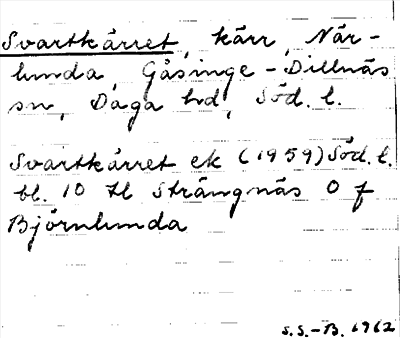 Svartkärret, kärr, När-
lunda, Gåsinge-Dillnäs
sn, Daga hd, Söd. l.
Svartkärret ek (1959) Söd. l.
bl. 10 Hl Strängnäs O f
Björnlunda
S.S.-B. 1962